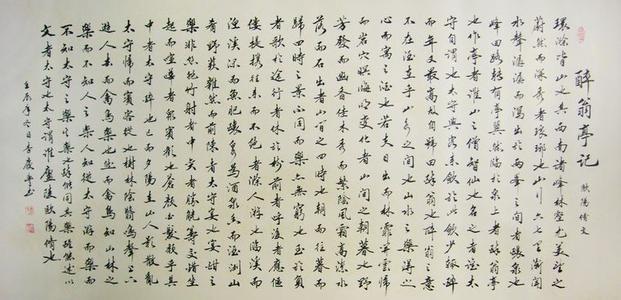 醉翁亭記
歐陽修文
環滁皆山也其西南諸峰林壑尤美望之
蔚然而深秀者琅琊也山行六七里漸聞
水聲潺潺而瀉出於兩峰之間者釀泉也
峰回路轉有亭翼然臨於泉上者醉翁亭
也作亭者誰山之僧智仙也名之者誰太
守自謂也太守與客來飲於此飲少輒醉
而年又最高故自號曰醉翁也醉翁之意
不在酒在乎山水之間也山水之樂得之
心而寓之酒也若夫日出而林霏開雲歸
而岩穴暝晦明變化者山間之朝暮也野
芳發而幽香佳木秀而繁陰風霜高潔水
落而石出者山間之四時也朝而往暮而
歸四時之景不同而樂亦無窮也至於負
者歌於途行者休於樹前者呼後者應傴
僂提攜往來而不絕者滁人游也臨溪而
漁溪深而魚肥釀泉為酒泉香而酒洌山
肴野蔌雜然而前陳者太守宴也宴酣之
樂非絲非竹射者中弈者勝觥籌交錯坐
起而喧嘩者眾賓歡也蒼顏白髮頹乎其
中者太守醉也已而夕陽在山人影散亂
太守歸而賓客從也樹林陰翳鳴聲上下
遊人去而禽鳥樂也然而禽鳥知山林之
樂而不知人之樂人知從太守游而樂而
不知太守之樂其樂也醉能同其樂醒能述以
文者太守也太守謂誰廬陵歐陽修也
壬辰年冬日李慶